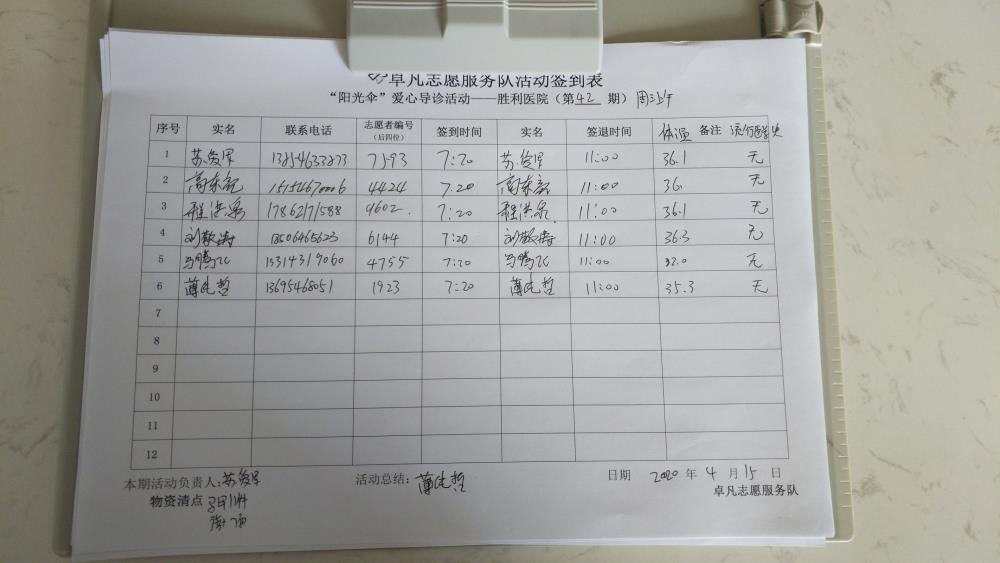 卓凡志愿服务队活动签到表
“阳光伞”爱心导诊活动——胜利医院（第 42 期）周三上午
序号 实名 联系电话 志愿者编号（后四位） 签到时间 实名 签退时间 体温 备注 流行病史
1 苏发军 13854633873 7593 7:20 苏发军 11:00 36.1 无
2 高东 4424 7:20 高东 11:00 36. 无
3 程洪泉 17862171588 4602 7:20 程洪泉 11:00 36.1 无
4 刘敬涛 13506465623 6144 7:20 刘敬涛 11:00 36.3 无
5 马腾飞 15314319060 4755 7:20 马腾飞 11:00 无
6 薄先哲 13695468051 1923 7:20 薄先哲 11:00 35.3 无
7
8
9
10
11
12
本期活动负责人：苏发军 活动总结：薄先哲 日期 2020 年 4 月 15 日
物资清点 卓凡志愿服务队